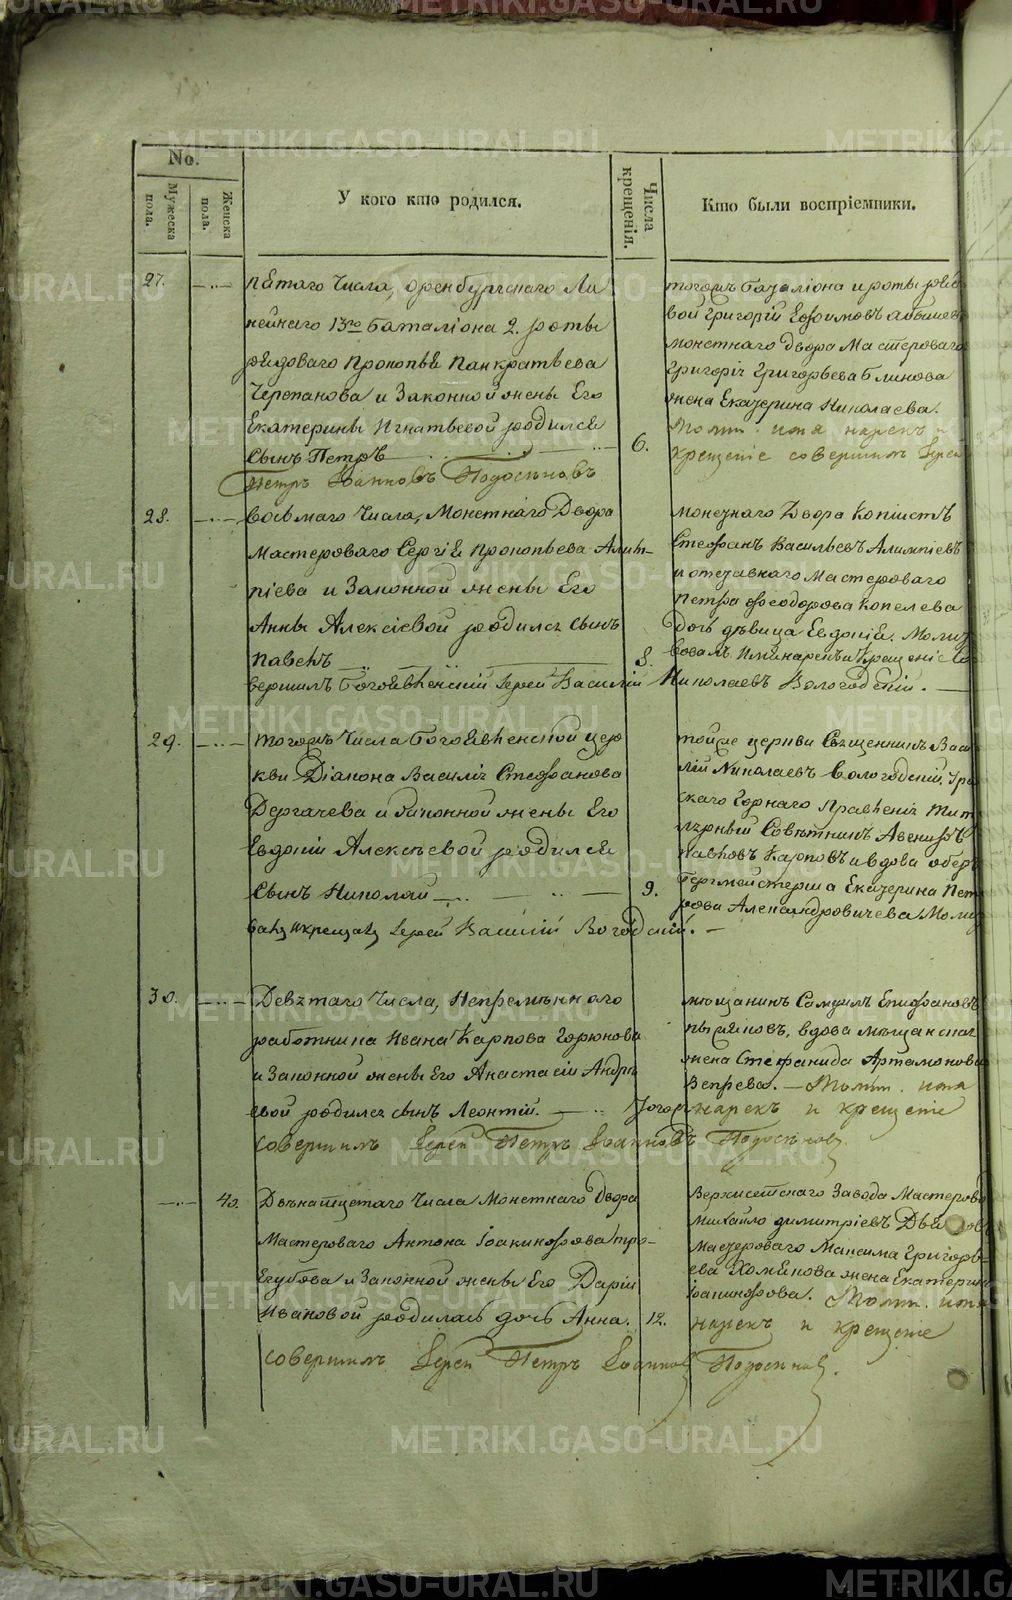 No.
Мужеска пола.
Женска пола.
У кого кто родился.
Числа крещенія.
Кто были воспріемники.
27.
пятаго Числа, оренбургскаго Ли
нейнаго 13го баталіона 2. роты
рядоваго Прокопья Панкратьева
Черепанова и Законной жены Его
Екатерины Игнатьевой родился
Сынъ Петръ
6.
Петръ Іоанновъ Подосѣновъ
тогожъ баталіона и роты рядо
вой Григорій Ефимовъ
монетнаго двора Мастероваго
Григорія Григорьева Блинова
жена Екатерина Николаева.
Молит. имя нарекъ и
крещеніе совершилъ Іерей
28.
восьмаго Числа, Монетнаго Двора
Мастероваго Сергія Прокопьева Алим-
піева и Законной жены Его
Анны Алексіевой родился сынъ
Павелъ
8.
вершилъ Богоявленскій Іерей Василій Николаевъ Вологодскій.
монетнаго Двора Копіистъ
Стефанъ Васильевъ Алимпіевъ
и отставнаго Мастероваго
Петра Феодорова Копелева
Дочь дѣвица Евдокія. Молит
вовалъ Имянарекъ и Крещеніе Со
29.
тогожъ Числа Богоявленской цер
кви Діакона Василія Стефанова
Дергачева и Законной жены Его
Евдокіи Алексѣевой родился
Сынъ Николай
9.
тойже церкви Священникъ Васи
лій Николаевъ Вологодскій, Ура
скаго Горнаго Правленія Тит
лярный Совѣтникъ
Павловъ Карповъ и вдова обер
Гергмейстерша Екатерина Пет
рова Александровичева Молит
валъ и крещалъ Іерей Василій
30.
Девятаго Числа, Непремѣннаго
работника Ивана Карпова Горюнова
и Законной жены Его Анастасіи Андре
евой родился сынъ Леонтій.
Тогожъ
мѣщанинъ Самуилъ Епифановъ
вдова мѣщанская
жена Стефанида Артамонова
Вепрева. Молит. имя
нарекъ и крещеніе
совершилъ Іерей Петръ Іоанновъ Подосѣновъ.
40.
Двѣнатцетаго Числа Монетнаго Двора
Мастероваго Антона Іоакинфова Тро-
егубова и Законной жены Его Дарьи
Ивановой родилась дочь Анна.
12.
Верхисетскаго Завода Мастерово
Михайло димитріевъ
Мастероваго Максима Григорь-
ева Хомякова жена Екатерин
Іоакинфова. Молит. имя
нарекъ и крещеніе
совершилъ Іерей Петръ Іоанновъ Подосѣновъ.
METRIKI.GASO-URAL.RU